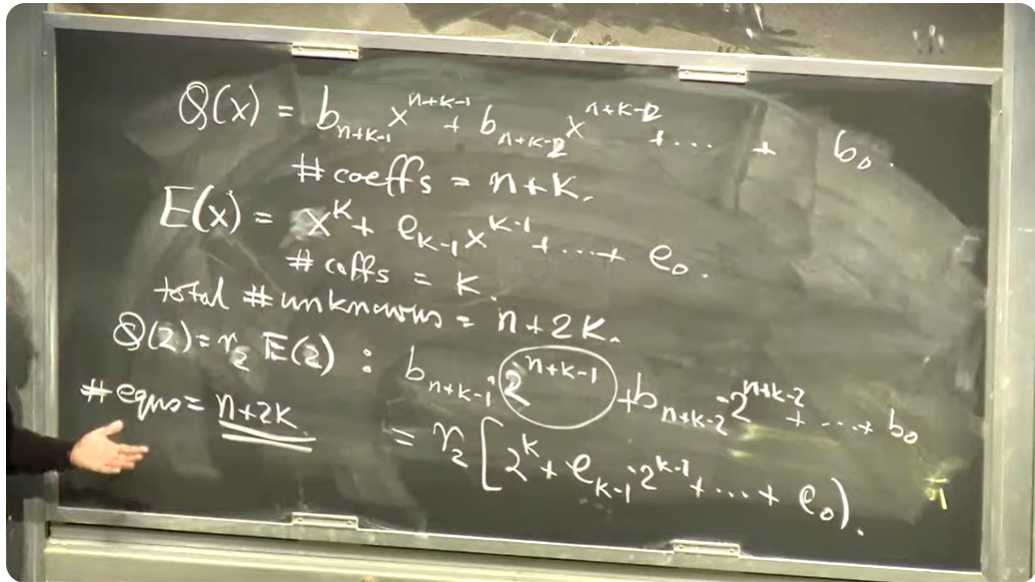 Q(x) = b_{n+k-1} x^{n+k-1} + b_{n+k-2} x^{n+k-2} + .... + b_0.
#coeffs = n+k.
E(x) = x^k + e_{k-1} x^{k-1} + .... + e_0.
#coffs = k.
total #unknowns = n+2k.
Q(2) = r_2 E(2) : b_{n+k-1} · 2^{n+k-1} + b_{n+k-2} · 2^{n+k-2} + ... + b_0
#eqns = n+2k. = r_2 [2^k + e_{k-1} · 2^{k-1} + .... + e_0).